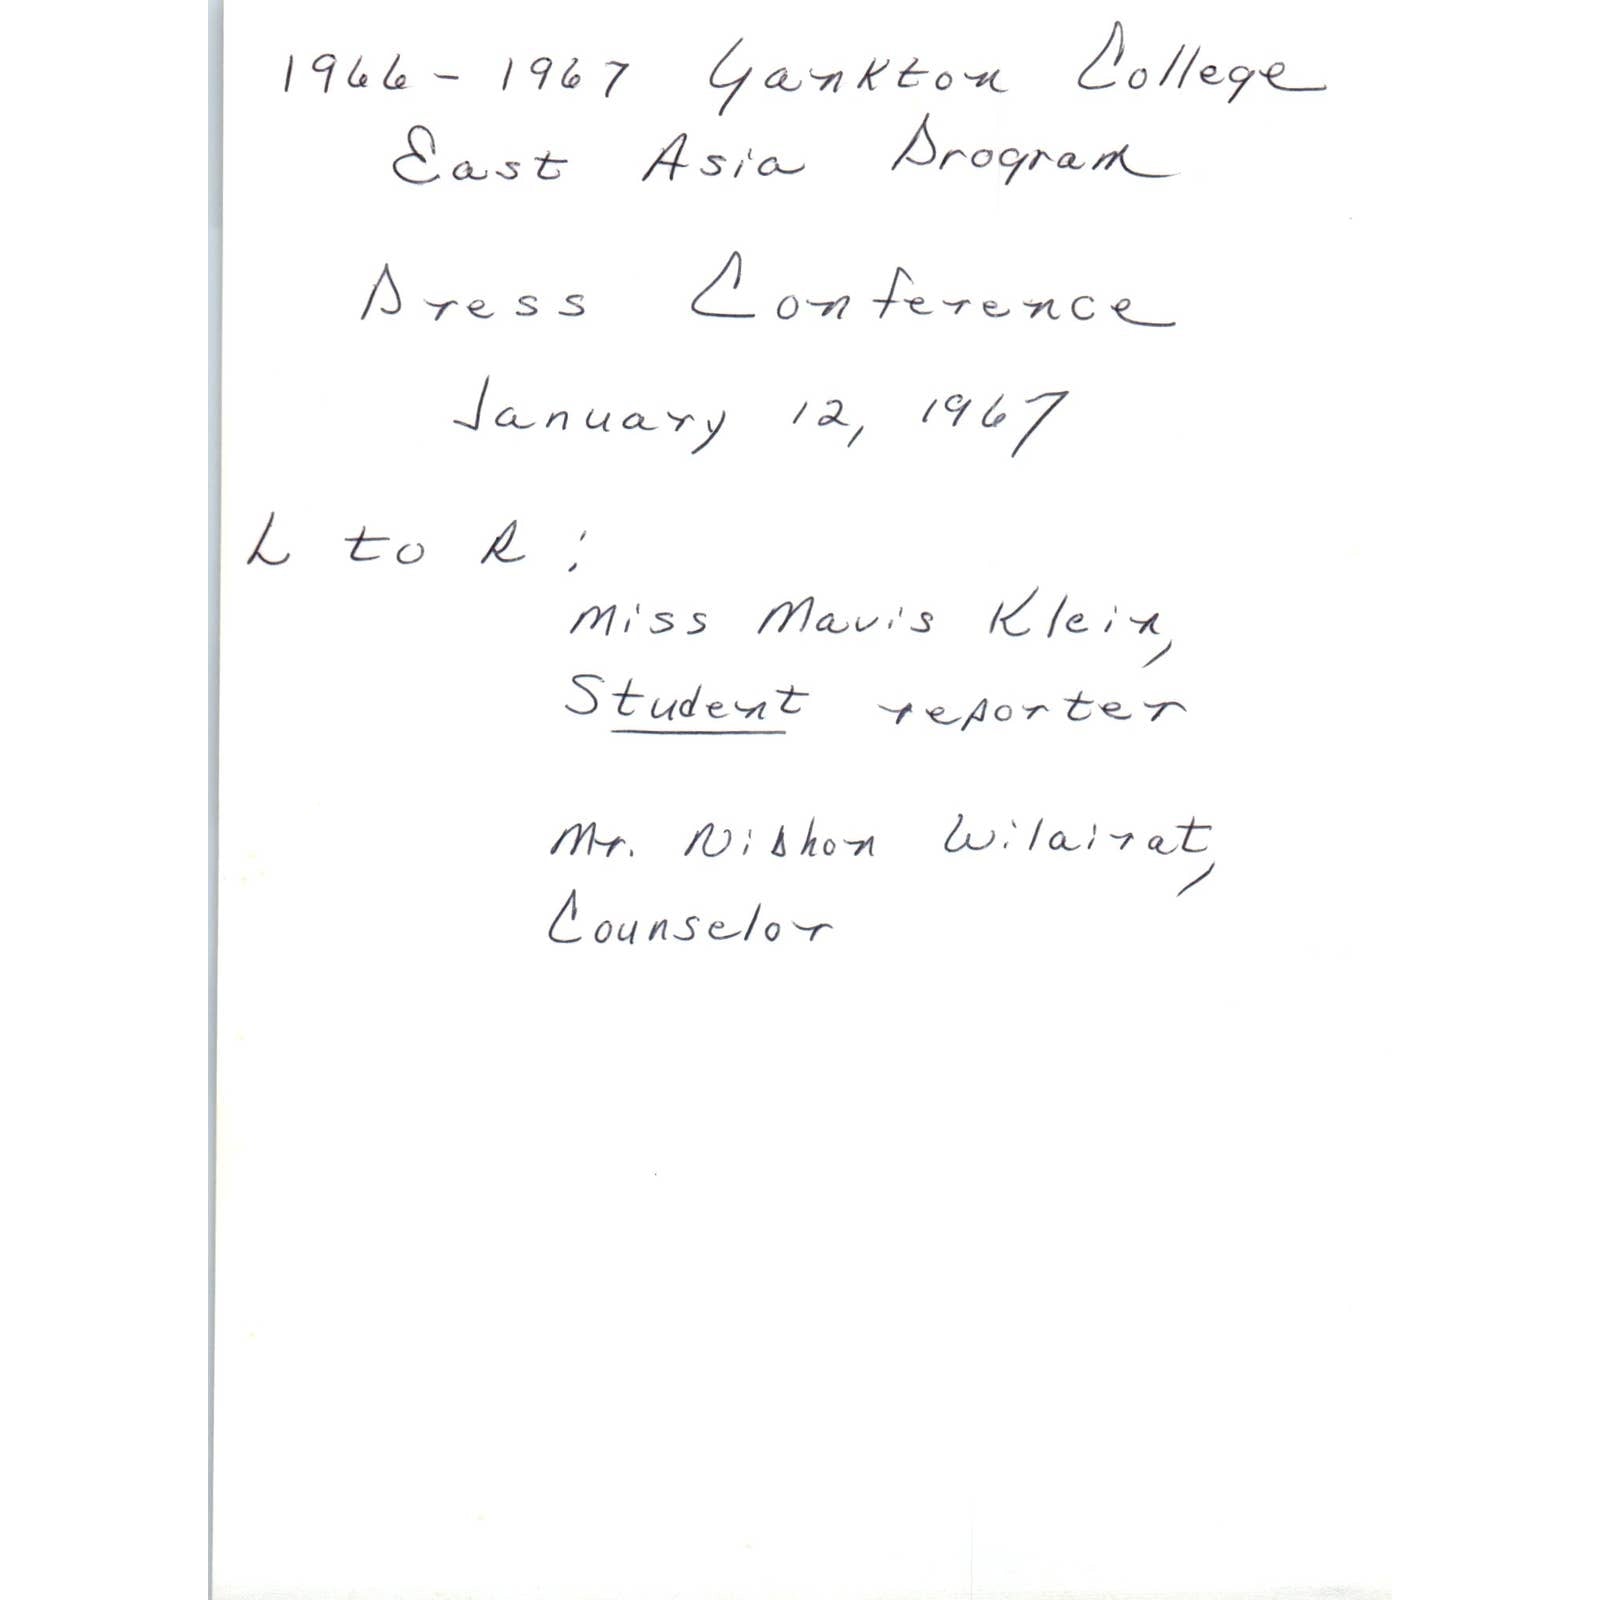 1966 - 1967 Yankton College
East Asia Program
Press Conference
January 12, 1967
L to R:
Miss Mavis Klein,
Student reporter
Mr. Niphon Wilairat,
Counselor